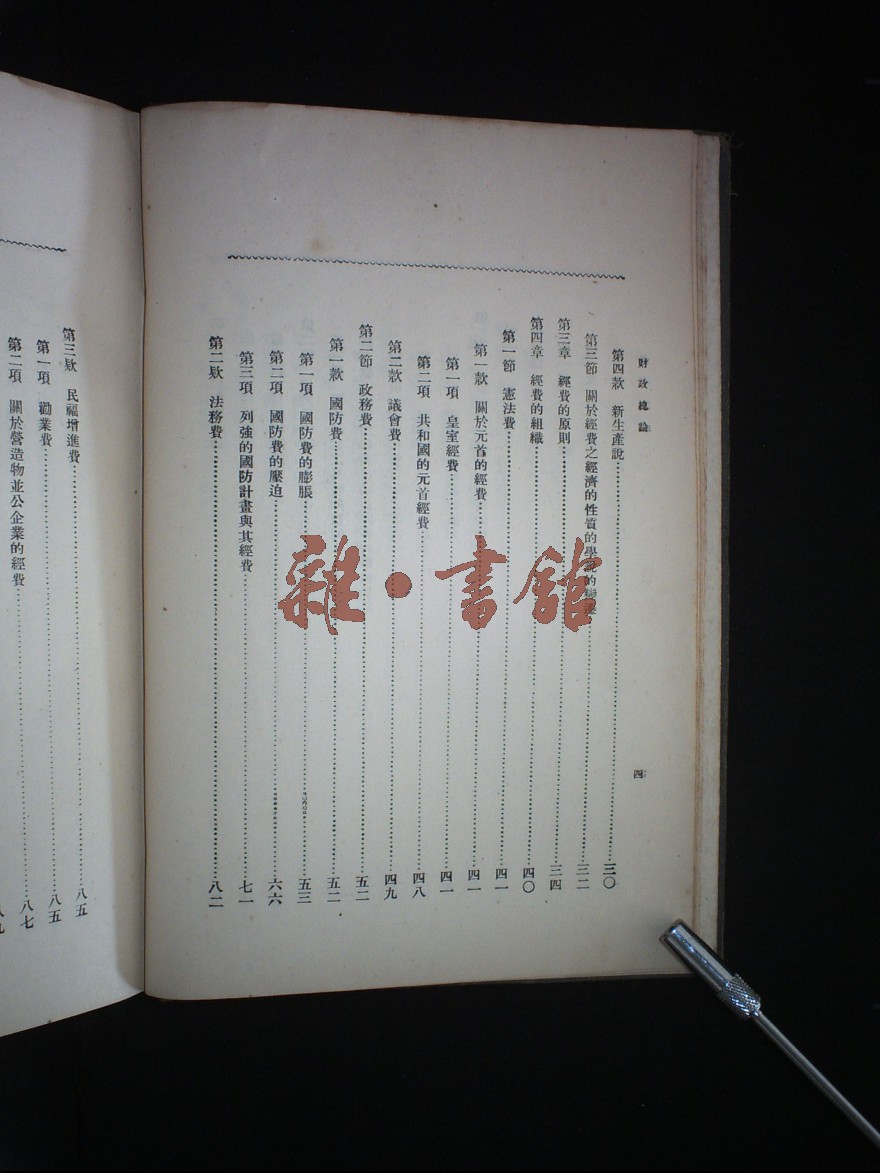 財政總論
四
第四款 新生產說 三〇
第三節 關於經費之經濟的性質的學說的 三二
第三章 經費的原則 三四
第四章 經費的組織 四〇
第一節 憲法費 四一
第一款 關於元首的經費 四一
第一項 皇室經費 四一
第二項 共和國的元首經費 四八
第二款 議會費 四九
第二節 政務費 五二
第一款 國防費 五二
第一項 國防費的膨脹 五三
第二項 國防費的壓迫 六六
第三項 列強的國防計畫與其經費 七一
第二款 法務費 八二
第三款 民福增進費 八五
第一項 勸業費 八五
第二項 關於營造物並公企業的經費 八七
雜·書館